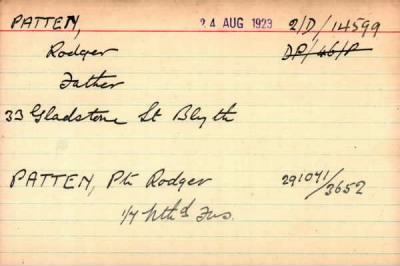 PATTEN, 24 AUG 1923 2/D/14599
Rodger DP/46/P
Father
33 Gladstone St Blyth
PATTEN, Pte Rodger 291071/3652
1/7 Nthd Fus.